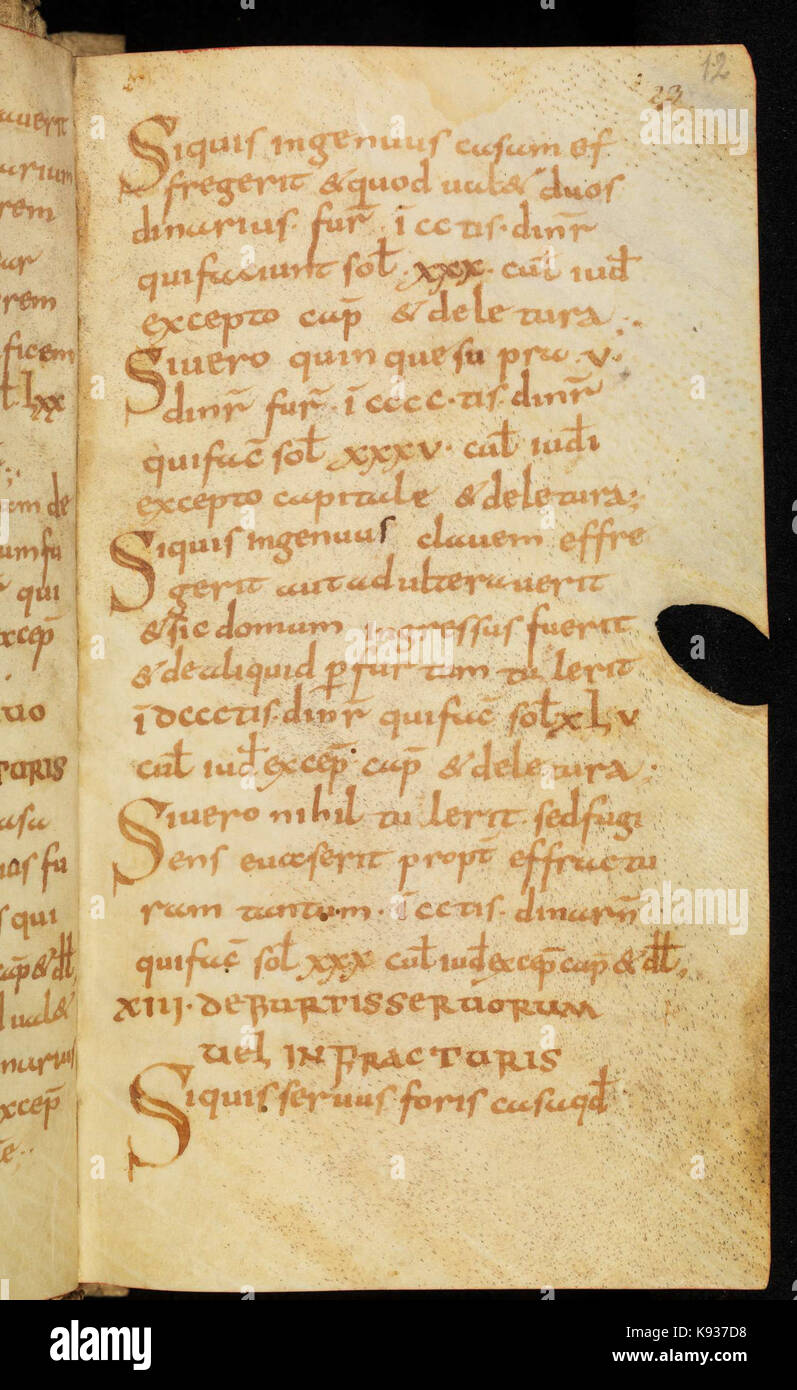 12
23
Siquis ingenuus casam ef
fregerit &quod ual& duos
dinarius· fur̄ · ī cctis· dinr̄
quifaciunt sol̄ ·xxx· cul̄ iud̄
excepto cap̄ &deletura
Siuero quinque supra ·v·
dinr̄ fur̄ · ī cccc·tis· dinr̄
quifac̄ sol̄ xxxv· cul̄ iudi
excepto capitale &deletura;
Siquis ingenuus clauem effre
gerit aut adulterauerit
&sic domum ingressus fuerit
&dealiquid p̱furtum tulerit
ī dccctis· dinr̄ quifac̄ sol̄ xLv
cul̄ iud̄ excep̄ cap̄ &deletura·
Siuero nihil tulerit sedfugi
ens euaserit propt̄ effractu
ram tantum· ī cctis· dinarīr
quifac̄ sol̄ xxx cul̄ iud̄ excep̄ cap̄ & dl̄l̄
XIII· DEFURTISSERUORUM
UEL INFRACTURIS
Siquis seruus foris casaqd̄
a alamy
Image ID: K937D8
www.alamy.com